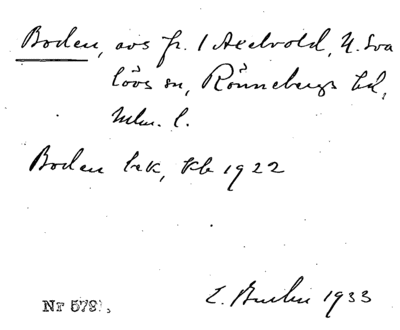 Boden, avs fr. 1 Axelvold, N. Sva
lövs sn, Rönnebergs hd,
Mlm. l.
Boden lek, kb 1922
Nr 578
E. 1933